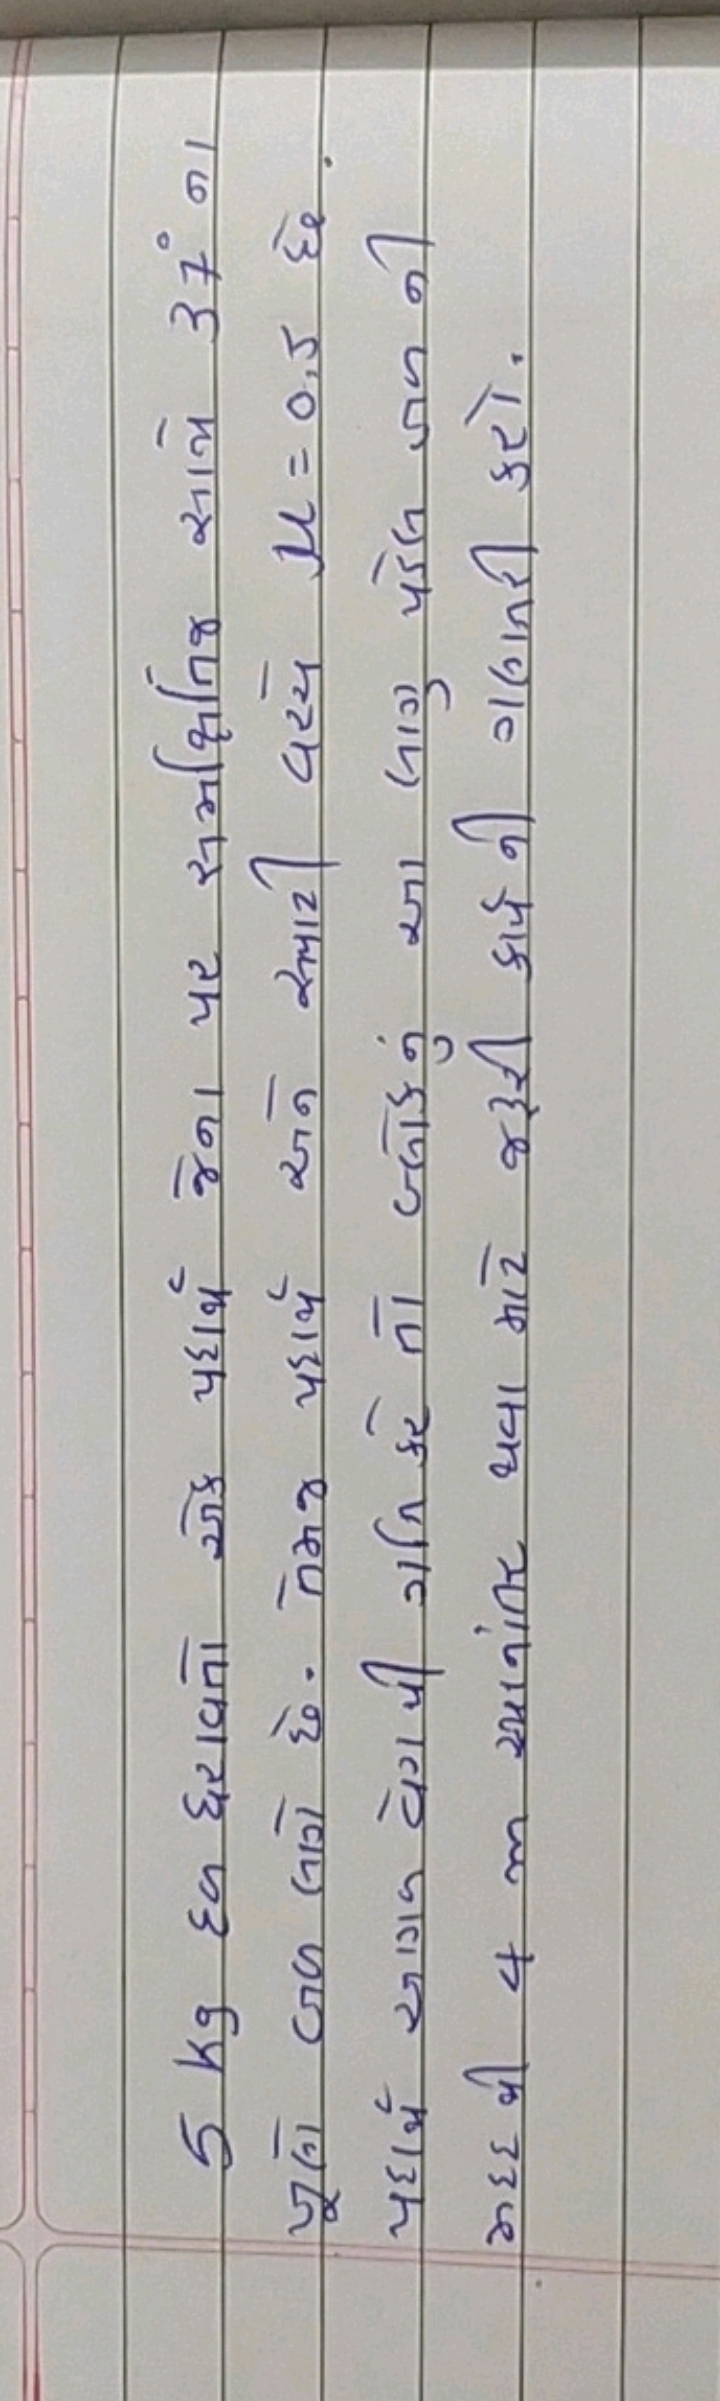 5 kg દળ ધરાવતો એક પદાર્થ જેના પર સમક્ષિતિજ સાથે 37° ના
ખૂણે બળ લાગે છે. તેમજ પદાર્થ અને સપાટી વચ્ચે μ = 0.5 છે.
પદાર્થ અચળ વેગ થી ગતિ કરે તો બ્લોકનું આ લાગુ પડેલ બળ ની
મદદ થી 4 m સ્થાનાંતર થવા માટે જરૂરી કાર્ય ની ગણતરી કરો.